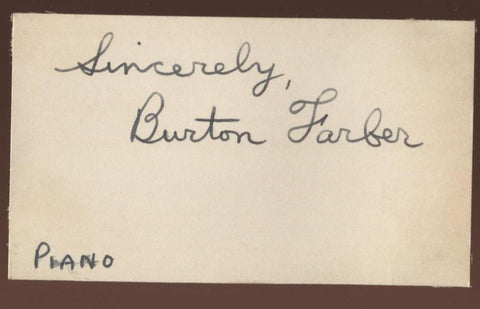 Sincerely,
Burton Farber
PIANO